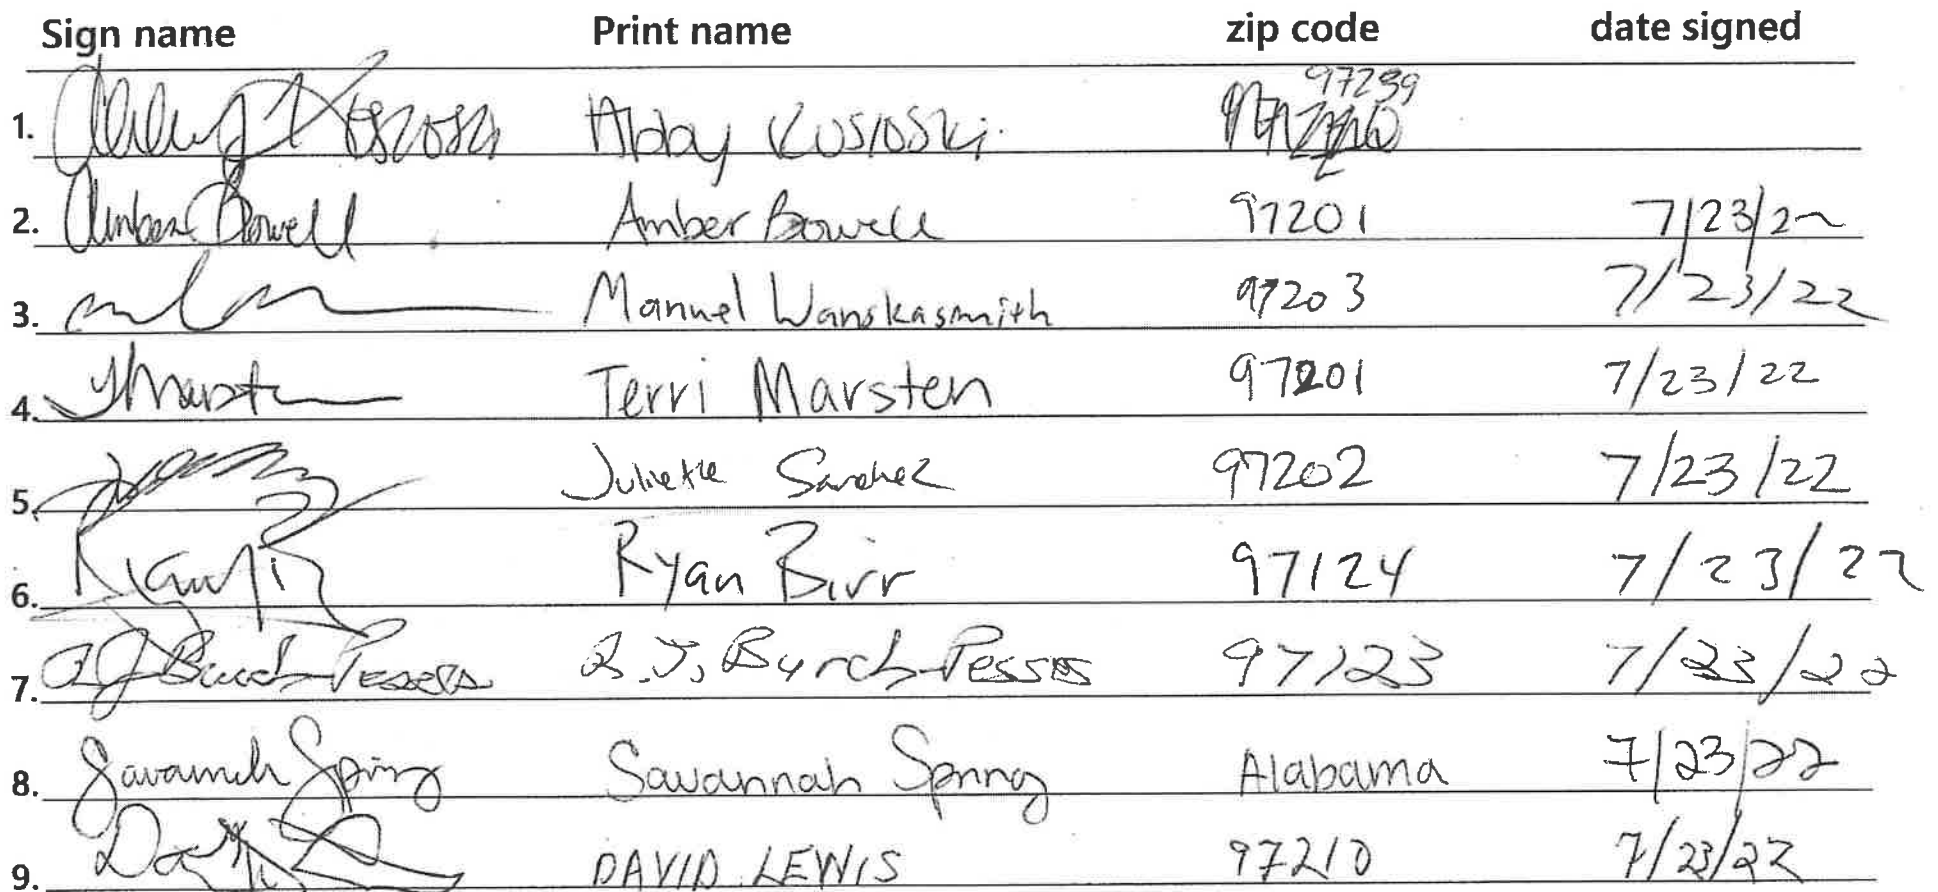 Sign name Print name zip code date signed
1. Abby Kosioski 97239
2. Amber Bowell Amber Bowell 97201 7/23/22
3. Manuel Wanskasmith 97203 7/23/22
4. TMarsten Terri Marsten 97201 7/23/22
5. Juliette Sanchez 97202 7/23/22
6. Ryan Birr 97124 7/23/22
7. Burch-Pesses J. Burch-Pesses 97123 7/23/22
8. Savannah Spring Savannah Spring Alabama 7/23/22
9. DAVID LEWIS 97210 7/23/22